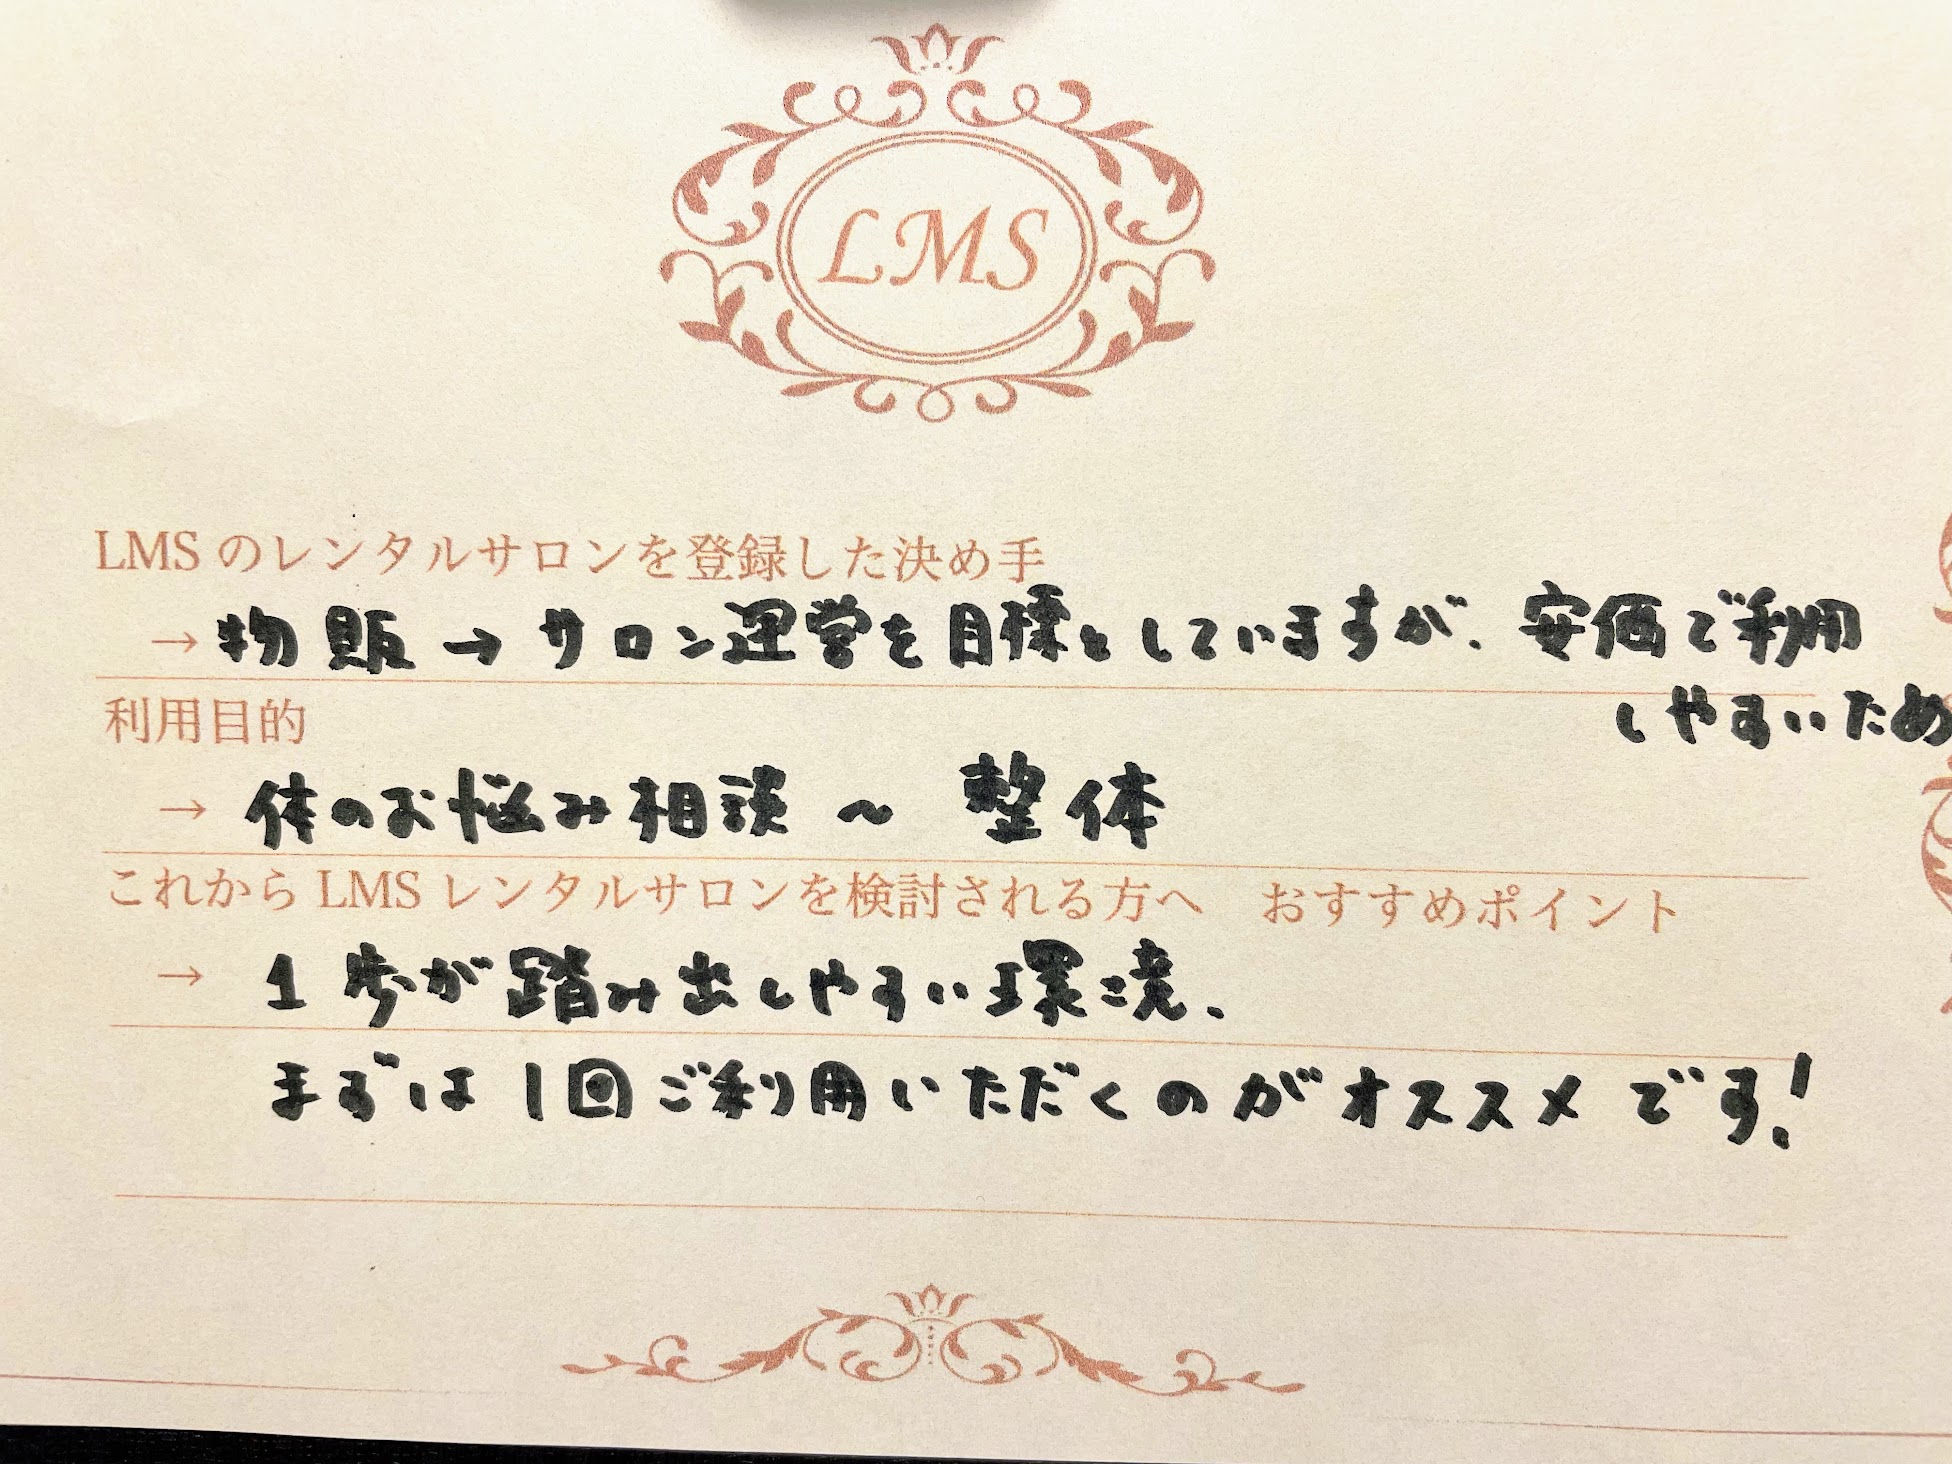 LMS
LMS のレンタルサロンを登録した決め手
→ 物販 → サロン運営を目標としていますが、安価で利用
しやすいため
利用目的
→ 体のお悩み相談 ~ 整体
これから LMS レンタルサロンを検討される方へ　おすすめポイント
→ 1歩が踏み出しやすい環境、
まずは1回ご利用いただくのがオススメです!